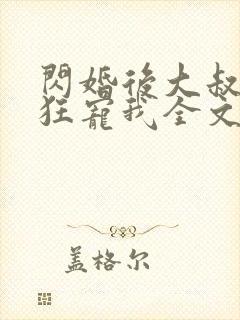 閃婚後大叔
狂寵我全文
盖格尔